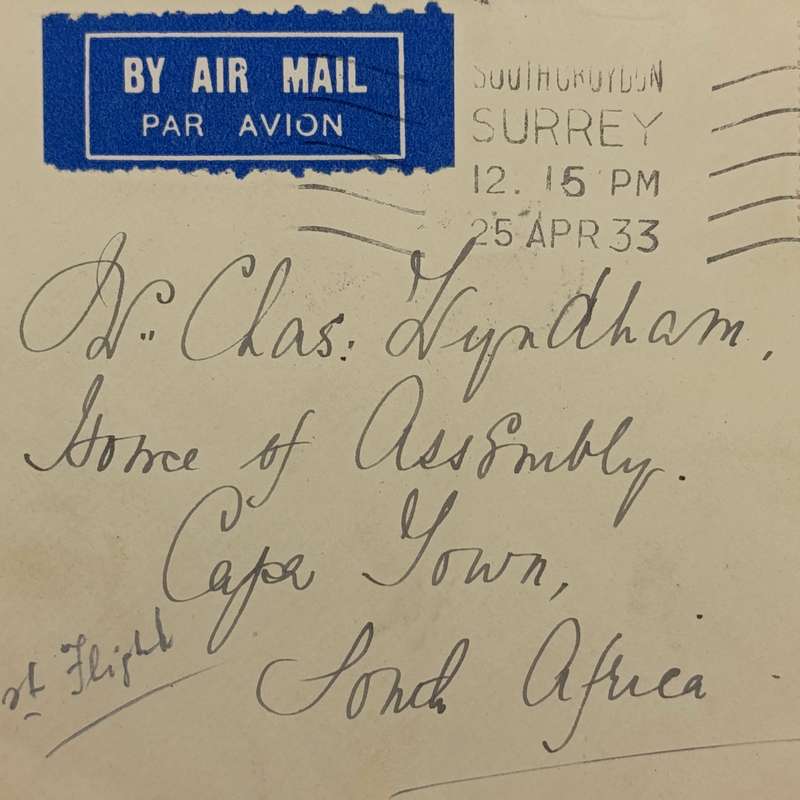 BY AIR MAIL
PAR AVION
SOUTH CROYDON
SURREY
12. 15 PM
25 APR 33
Dr. Chas. Wyndham,
House of Assembly.
Cape Town,
South Africa
st Flight